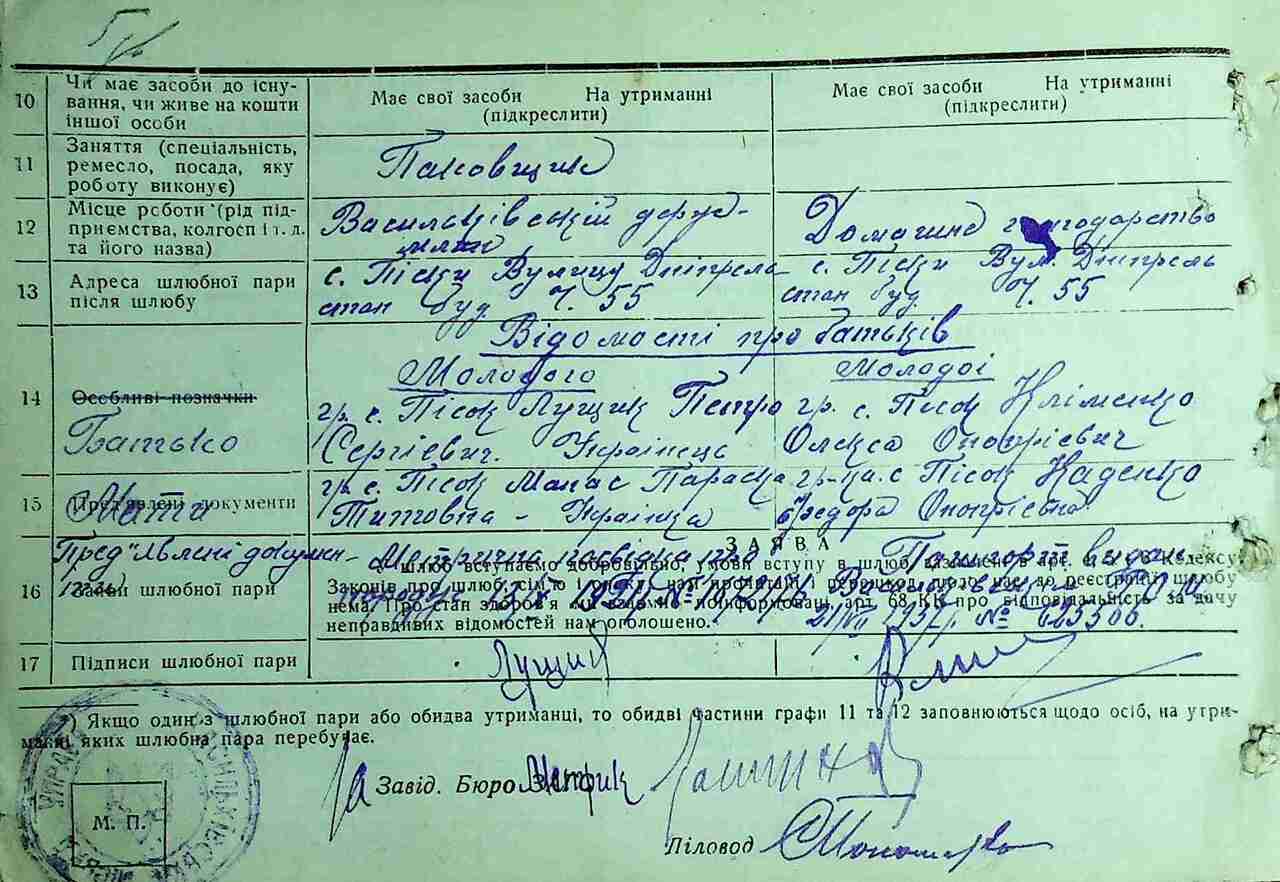 10 Чи має засоби до існу-
вання, чи живе на кошти
іншої особи
Має свої засоби На утриманні
(підкреслити)
Має свої засоби На утриманні
(підкреслити)
11 Заняття (спеціальність,
ремесло, посада, яку
роботу виконує)
Паковщик
12 Місце роботи (рід під-
приємства, колгосп і т. д.
та його назва)
Васильківській
Домашнє господарство
13 Адреса шлюбної пари
після шлюбу
с. Піски Вулицу Дніпрельстан буд Ч. 55
с. Піски Вул. Дніпрельстан буд Ч. 55
Відомості про батьків
Молодого
Молодої
14 Особливі позначки
Батько
гр. с. Пісок Лущик Петро
Сергієвич. Українець
гр. с. Пісок Кліменко
Олекса Онопрієвич
15 Пред'явлені документи
Мати
гр. с. Пісок Манас Параска
Титовна - Українка
гр-ка с Пісок Каденко
Федора Онопрієвна
Пред'явлені докумен-
16 Заяви шлюбної пари
ЗАЯВА
В шлюб вступаємо добровільно, умови вступу в шлюб, зазначені в арт. Кодексу
Законів про шлюб, сім'ю і опіку, нам прочитані і перешкод щодо нас до реєстрації шлюбу
нема. Про стан здоров'я ми взаємно поінформовані, арт. 68 КК про відповідальність за дачу
неправдивих відомостей нам оголошено.
Метрична
№ 623506.
17 Підписи шлюбної пари
Лущик
*) Якщо один з шлюбної пари або обидва утриманці, то обидві частини графи 11 та 12 заповнюються щодо осіб, на утри-
манні яких шлюбна пара перебуває.
За Завід. Бюро Метрик
М. П.
Діловод